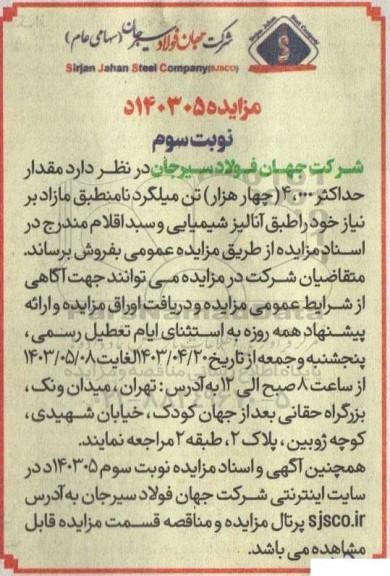 شرکت جهان فولاد سیرجان (سهامی عام)
Sirjan Jahan Steel Company(SJSCO)
مزایده ۱۴۰۳۰۵د
نوبت سوم
شرکت جهان فولاد سیرجان در نظر دارد مقدار
حداکثر ۴,۰۰۰ (چهار هزار) تن میلگرد نامنطبق مازاد بر
نیاز خود را طبق آنالیز شیمیایی و سبد اقلام مندرج در
اسناد مزایده از طریق مزایده عمومی بفروش برساند.
متقاضیان شرکت در مزایده می توانند جهت آگاهی
از شرایط عمومی مزایده و دریافت اوراق مزایده و ارائه
پیشنهاد همه روزه به استثنای ایام تعطیل رسمی،
پنجشنبه و جمعه از تاریخ ۱۴۰۳/۰۴/۲۰ لغایت ۱۴۰۳/۰۵/۰۸
از ساعت ۸ صبح الی ۱۲ به آدرس : تهران ، میدان ونک ،
بزرگراه حقانی بعد از جهان کودک ، خیابان شهیدی ،
کوچه ژوبین ، پلاک ۲ ، طبقه ۲ مراجعه نمایند.
همچنین آگهی و اسناد مزایده نوبت سوم ۱۴۰۳۰۵د در
سایت اینترنتی شرکت جهان فولاد سیرجان به آدرس
sjsco.ir پرتال مزایده و مناقصه قسمت مزایده قابل
مشاهده می باشد.